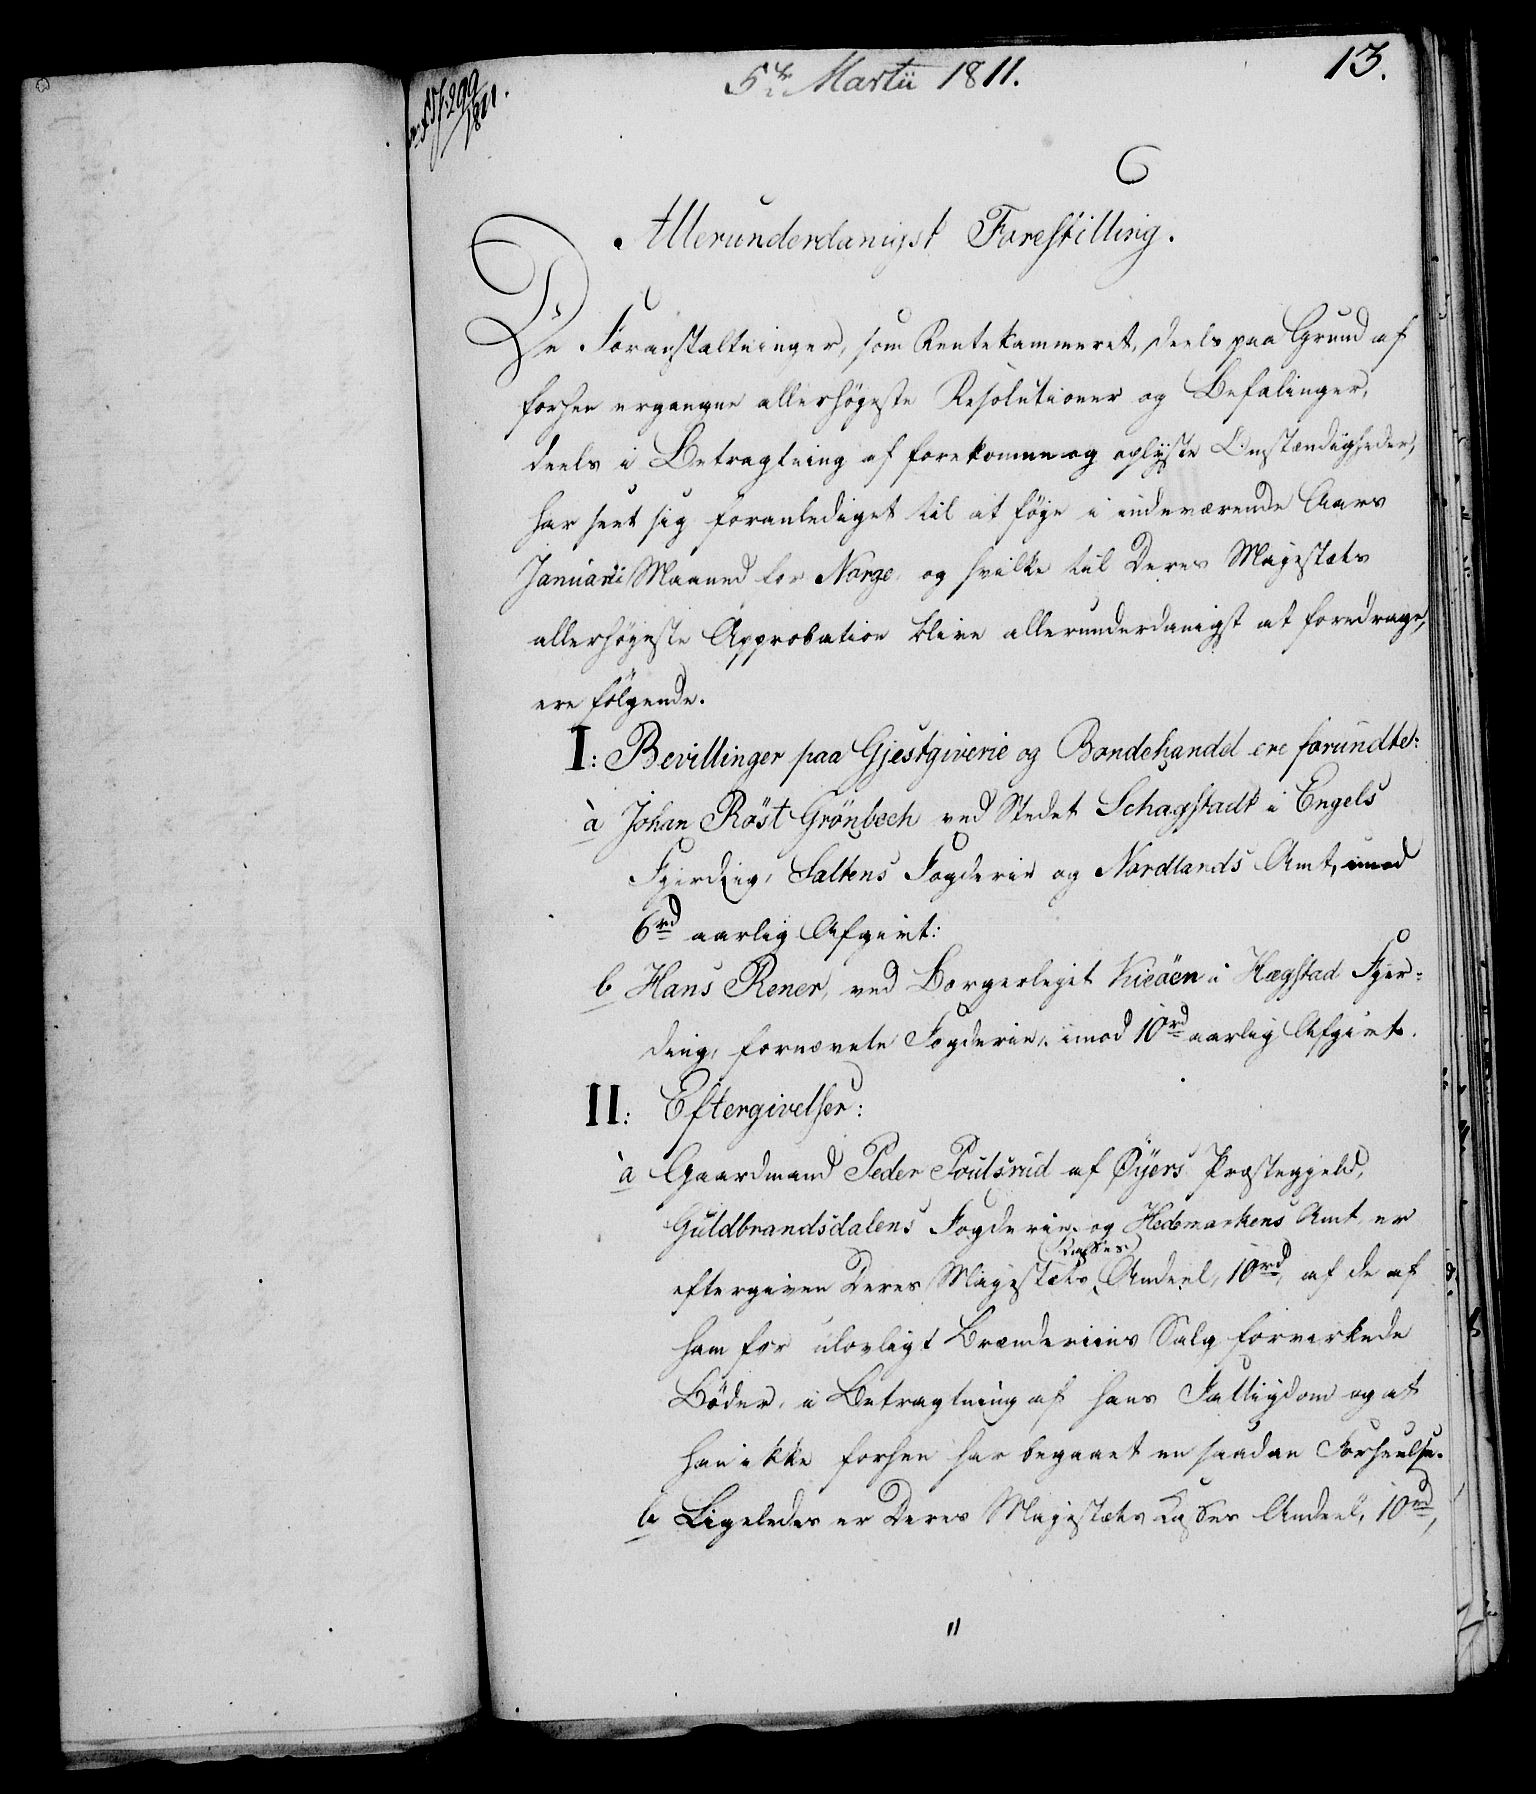 5te Martii 1811.
13.
Allerunderdanigst Forestilling.
De Foranstaltninger, som Rentekammeret, deels paa Grund af
forhen ergangne allerhøgeste Resolutioner og Befalinger,
deels i Betragtning af forekomne og oplyste Omstændigheder,
har seet sig foranlediget til at føje i indeværende Aars
Januarii Maaned for Norge, og hvilke til Deres Majestæts
allerhøgeste Approbation blive allerunderdanigst at foredrage,
ere følgende.
I: Bevillinger paa Gjestgiverie og Bondehandel ere forundte:
a Johan Röst Grönbech ved Stedet Schagstadt i Engels
Fjerding, Saltens Fogderie og Nordlands Amt, imod
6rd aarlig Afgivt:
b Hans Rener, ved Borgerleyet Kieöen i Hægstad Fjer-
ding, fornævnte Fogderie, imod 10rd aarlig Afgivt.
II: Eftergivelser:
a Gaardmand Peder Poulsrud af Øyers Præstegjeld,
Guldbrandsdalens Fogderie og Hedemarkens Amt, er
eftergiven Deres Majestæts Kasses Andeel, 10rd, af de af
ham for ulovligt Brændeviins Salg forvirkede
Bøder, i Betragtning af hans Fattigdom og at
han ikke forhen har begaaet en saadan Forseelse.
b Ligeledes er Deres Majestæts Kasses Andeel, 10rd,